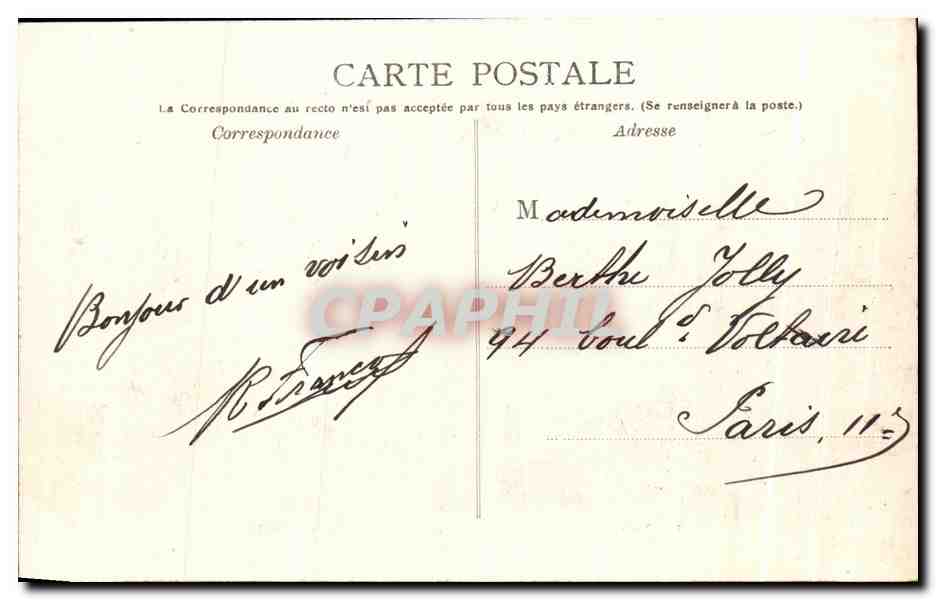 CARTE POSTALE
La Correspondance au recto n'est pas acceptée par tous les pays étrangers. (Se renseigner à la poste.)
Correspondance
Adresse
Bonjour d'un voisin
Mademoiselle
Berthe Jolly
94 boul d. Voltaire
Paris, 11e
CPAPHIL